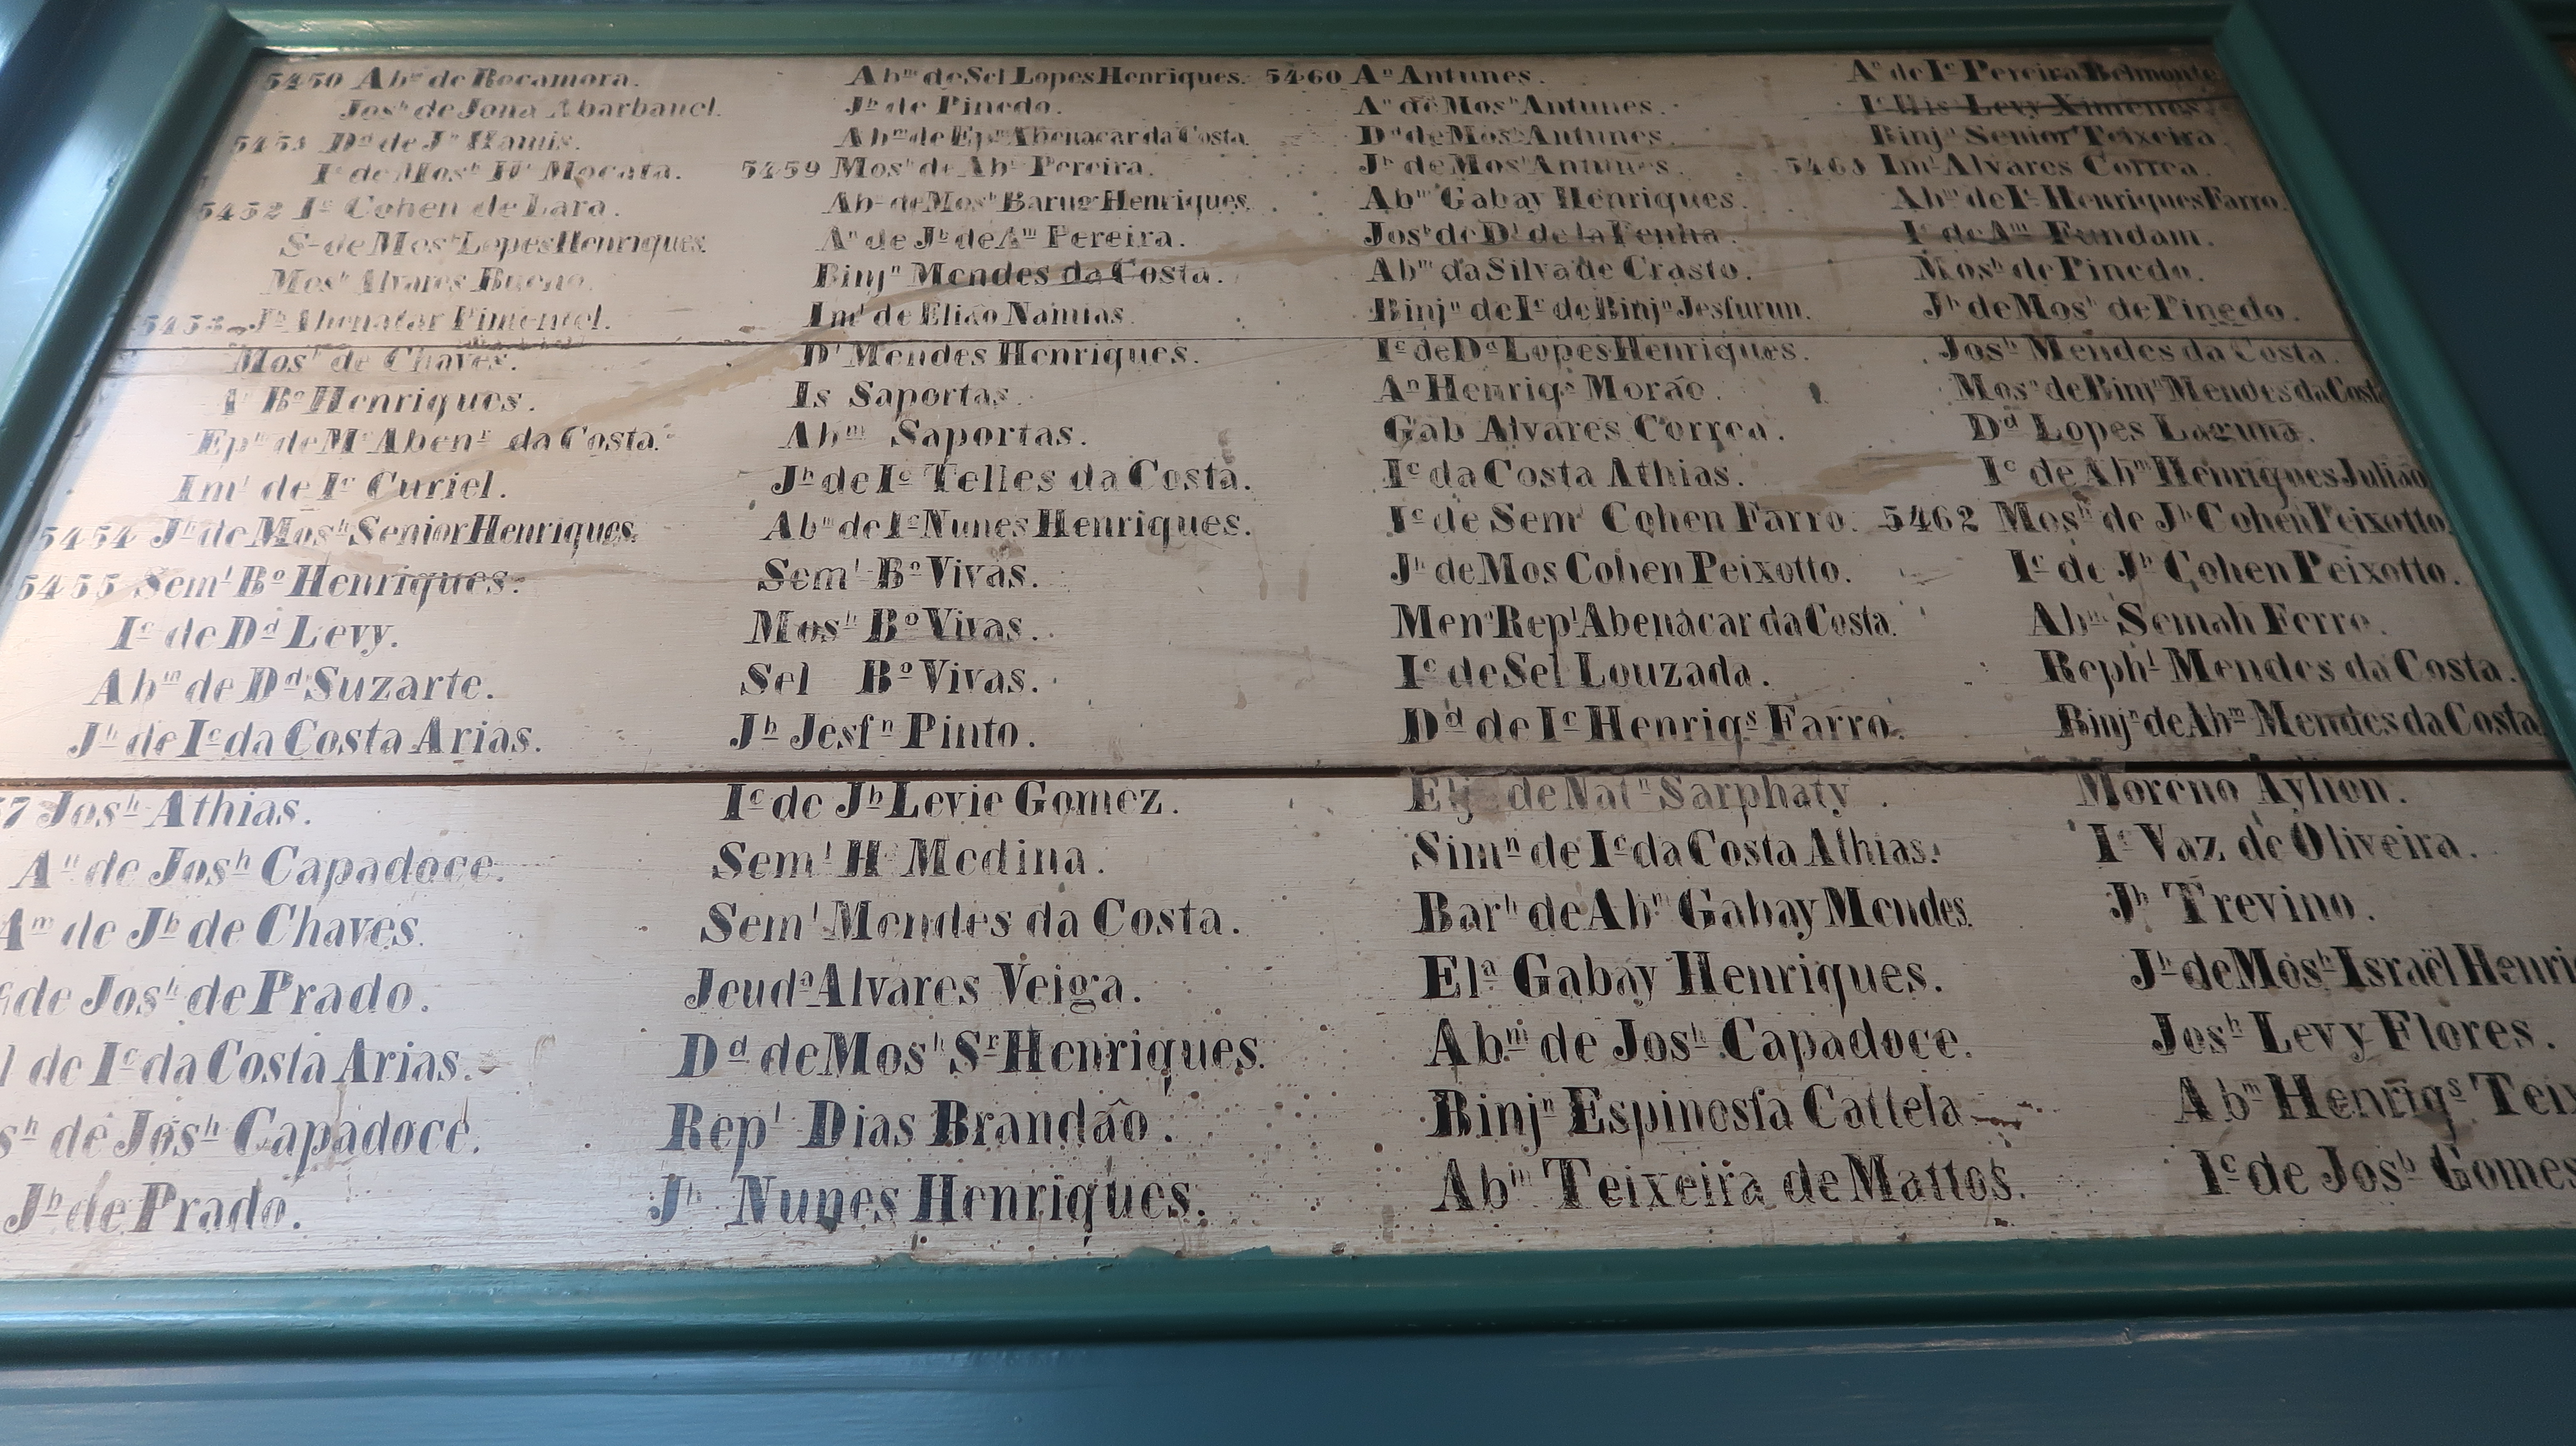 5450 Abm de Rocamora.
Josh de Jona Abarbanel.
5451 Dd de Jh Hamis.
Ic de Mosh Mocata.
5452 Ic Cohen de Lara.
S de Mosh Lopes Henriques.
Mosh Alvares Bueno.
5453 Jh Abenatar Pimentel.
Mosh de Chaves.
Bo Henriques.
Epm de Mr Abenr da Costa.
Iml de Ic Curiel.
5454 Jh de Mosh Senior Henriques.
5455 Seml Bo Henriques.
Ic de Dd Levy.
Abm de Dd Suzarte.
Jh de Ic da Costa Arias.
57 Josh Athias.
An de Josh Capadoce.
Am de Jh de Chaves.
de Josh de Prado.
l de Ic da Costa Arias.
sh de Josh Capadoce.
Jh de Prado.
Abm de Sel Lopes Henriques.
Jh de Pinedo.
Abm de Epm Abenacar da Costa.
5459 Mosh de Abm Pereira.
Abm de Mosh Barug Henriques.
An de Jh de Am Pereira.
Binjn Mendes da Costa.
Iml de Eliao Namias.
Dl Mendes Henriques.
Is Saportas.
Abm Saportas.
Jh de Ic Telles da Costa.
Abm de Ic Nunes Henriques.
Seml Bo Vivas.
Mosh Bo Vivas.
Sel Bo Vivas.
Jh Jesfn Pinto.
Ic de Jh Levie Gomez.
Seml H Medina.
Seml Mendes da Costa.
Jeuda Alvares Veiga.
Dd de Mosh Sr Henriques.
Repl Dias Brandão.
Jh Nunes Henriques.
5460 An Antunes.
An de Mosh Antunes.
Dd de Mosh Antunes.
Jh de Mosh Antunes.
Abm Gabay Henriques.
Josh de Dl de la Penha.
Abm da Silva de Crasto.
Binjn de Ic de Binjn Jesfurun.
Ic de Dd Lopes Henriques.
An Henriqs Morão.
Gab Alvares Correa.
Ic da Costa Athias.
Ic de Seml Cohen Farro.
Jh de Mos Cohen Peixotto.
Mena Repl Abenacar da Costa.
Ic de Sel Louzada.
Dd de Ic Henriqs Farro.
Elj de Natn Sarphaty.
Simn de Ic da Costa Athias.
Barh de Abm Gabay Mendes.
Ela Gabay Henriques.
Abm de Josh Capadoce.
Binjn Espinosfa Cattela
Abm Teixeira de Mattos.
An de Ic Pereira Belmonte.
Levy Ximenes.
Binjn Senior Teixeira.
5461 Iml Alvares Correa.
Abm de Ic Henriques Farro.
Ic de Am Fundam.
Mosh de Pinedo.
Jh de Mosh de Pinedo.
Josh Mendes da Costa.
Mosh de Binjn Mendes da Costa
Dd Lopes Laguna.
Ic de Abm Henriques Julião
5462 Mosh de Jh Cohen Peixotto.
Ic de Jh Cohen Peixotto.
Abm Semah Ferro.
Rephl Mendes da Costa.
Binjn de Abm Mendes da Costa
Moreno Aylion.
Ic Vaz de Oliveira.
Jh Trevino.
Jh de Mosh Israël Henri
Josh Levy Flores.
Abm Henriqs Teix
Ic de Josh Gomes